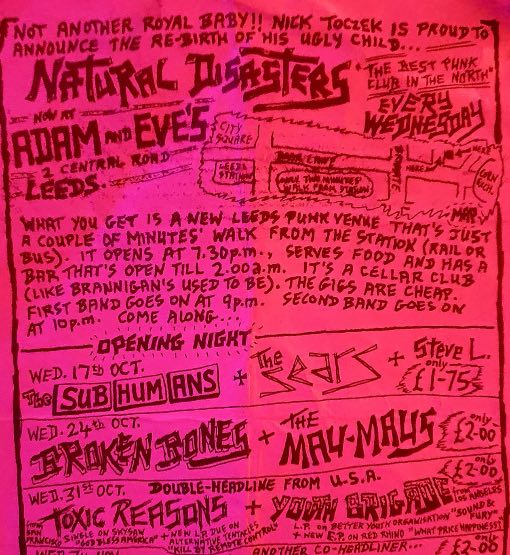 NOT ANOTHER ROYAL BABY!! NICK TOCZEK IS PROUD TO
ANNOUNCE THE RE-BIRTH OF HIS UGLY CHILD...
NATURAL DISASTERS
"THE BEST PUNK
CLUB IN THE NORTH"
EVERY
WEDNESDAY
NOW AT
ADAM AND EVE'S
2 CENTRAL ROAD
LEEDS.
CITY
SQUARE
LEEDS
STATION
BOAR LANE
WALK FROM STATION
HERE
CORN
MAP
WHAT YOU GET IS A NEW LEEDS PUNK VENUE THAT'S JUST
A COUPLE OF MINUTES' WALK FROM THE STATION (RAIL OR
BUS). IT OPENS AT 7.30p.m., SERVES FOOD AND HAS A
BAR THAT'S OPEN TILL 2.00a.m. IT'S A CELLAR CLUB
(LIKE BRANNIGAN'S USED TO BE). THE GIGS ARE CHEAP.
FIRST BAND GOES ON AT 9p.m. SECOND BAND GOES ON
AT 10p.m. COME ALONG...
OPENING NIGHT
WED. 17th OCT.
The SUBHUMANS + The SEARS + STEVE L.
only
£1-75
WED. 24th OCT.
BROKEN BONES + THE MAU-MAUS
only
£2-00
WED. 31st OCT. DOUBLE-HEADLINE FROM U.S.A.
only
£2-00
TOXIC REASONS + YOUTH BRIGADE
FROM SAN FRANCISCO
SINGLE ON SKYSAW
"GOD BLESS AMERICA"
+ NEW L.P. DUE ON
ALTERNATIVE TENTACLES
"KILL BY REMOTE CONTROL"
LOS ANGELES
L.P. ON BETTER YOUTH ORGANISATION "SOUND &
FURY"
+ NEW E.P. ON RED RHINO "WHAT PRICE HAPPINESS?"
ANOTHER CO-HEADLINE
£2-00